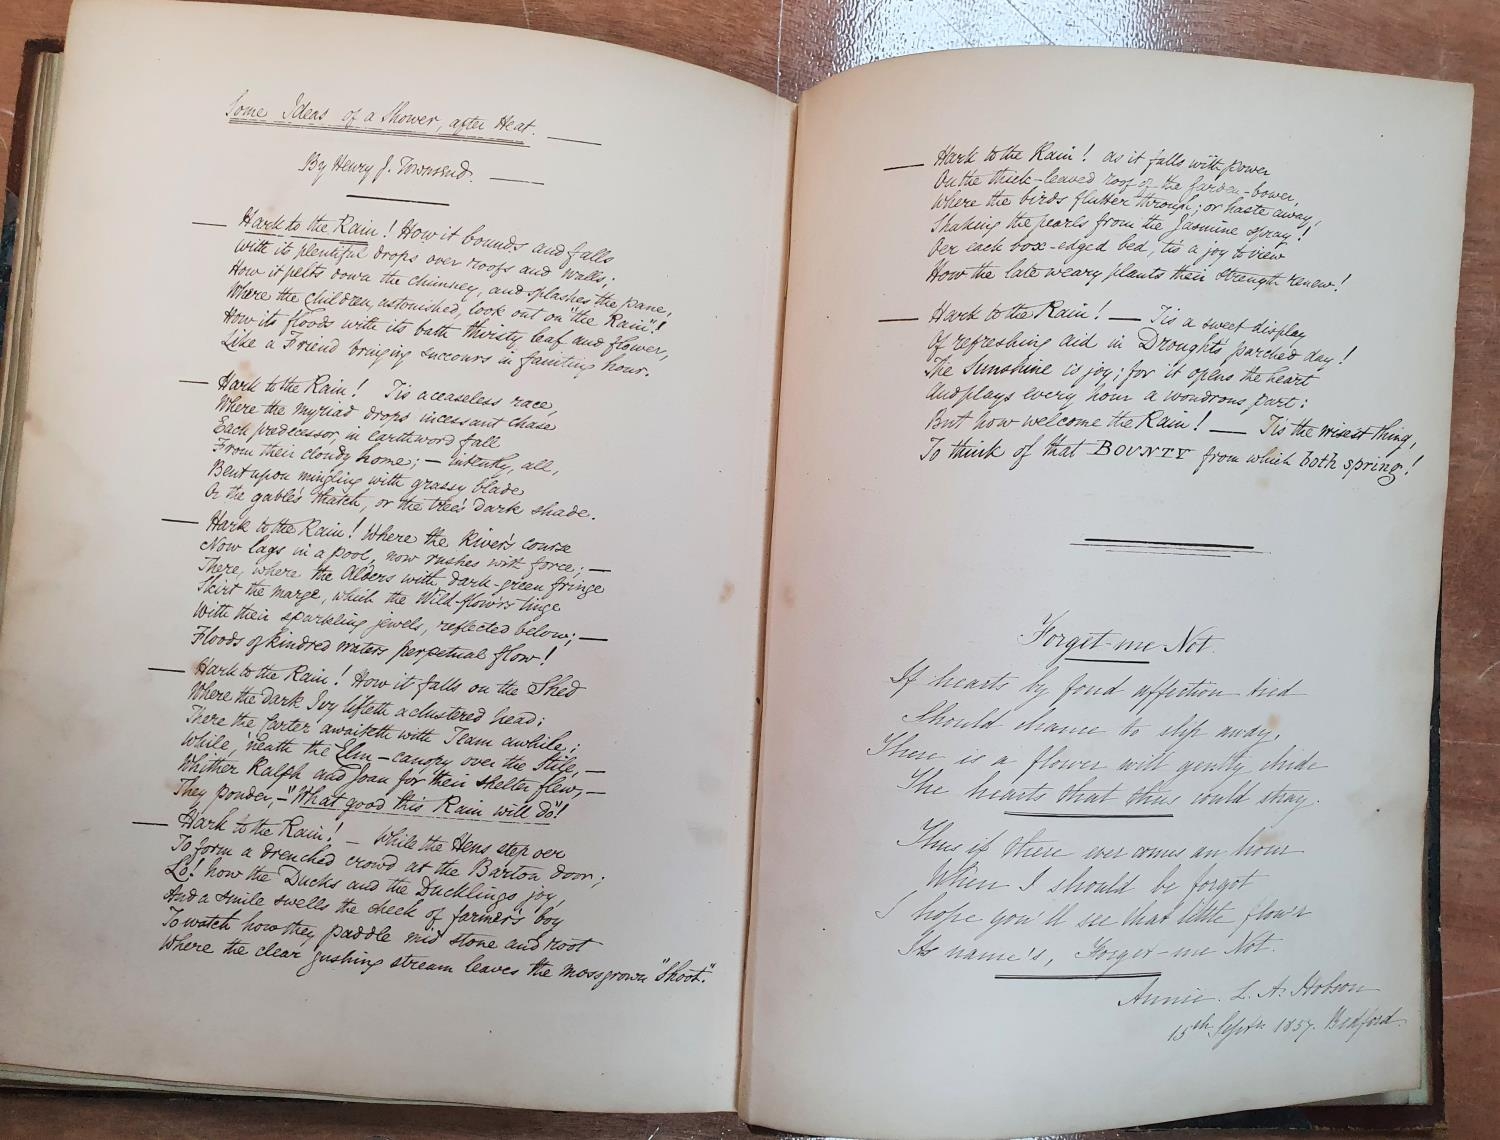 Some Ideas of a Shower, after Heat. —
By Henry J. Townsend. —
— Hark to the Rain! How it bounds and falls
With its plentiful drops over roofs and walls;
How it pelts down the chimney, and splashes the pane,
Where the Children, astonished, look out on "the Rain"!
How its floods with its bath thirsty leaf and flower,
Like a Friend bringing succours in fainting hour.
— Hark to the Rain! Tis a ceaseless race,
Where the myriad drops incessant chase
Each predecessor, in Earthword fall
From their cloudy home; — intently, all,
Bent upon mingling with grassy blade
Or the gable's thatch, or the tree's dark shade.
— Hark to the Rain! Where the River's course
Now lags in a pool, now rushes with force; —
There, where the Alders with dark-green fringe
Skirt the marge, which the Wild-flow'rs tinge
With their sparkling jewels, reflected below; —
Floods of kindred waters perpetual flow!
— Hark to the Rain! How it falls on the Shed
Where the dark Ivy lifteth a clustered head;
There the Carter awaiteth with Team awhile;
While, 'neath the Elm-canopy over the Stile, —
Whither Ralph and Joan for their shelter flew, —
They ponder, — "What good this Rain will do"!
— Hark to the Rain! — While the Hens step over
To form a drenched crowd at the Barton door;
Lo! how the Ducks and the Ducklings joy,
And a smile swells the cheek of farmer's boy
To watch how they paddle mid stone and root
Where the clear gushing stream leaves the mossgrown "Shoot".
— Hark to the Rain! as it falls with power
On the thick-leaved roof of the Garden-bower,
Where the birds flutter through; or haste away,
Shaking the pearls from the Jasmine spray!
Oer each box-edged bed, tis a joy to view
How the late weary plants their strength renew!
— Hark to the Rain! — Tis a sweet display
Of refreshing aid in Drought's parched day!
The Sunshine is joy; for it opens the heart
And plays every hour a wondrous part:
But how welcome the Rain! — Tis the wisest thing,
To think of that BOUNTY from which both spring!
Forget-me Not.
If hearts by fond affection tied
Should chance to slip away,
There is a flower will gently chide
The hearts that thus could stray.
Thus if there ever comes an hour
When I should be forgot
I hope you'll see that little flow'r
Its name's, Forget-me Not.
Annie. L. A. Hobson
15th Septr. 1857. Bedford.